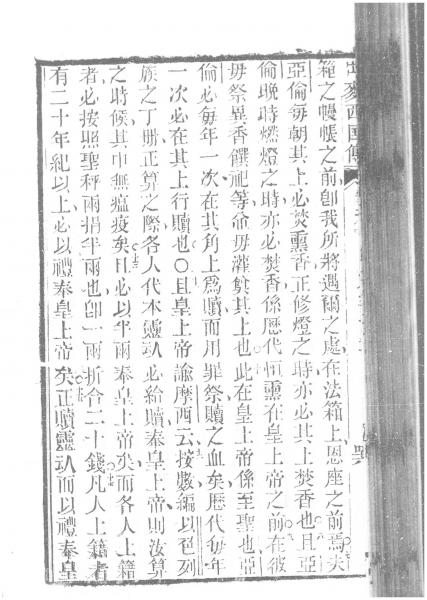 出麥西國傳
箱之幔帳之前卽我所將遇爾之處在法箱上恩座之前焉夫
亞倫每朝其上必焚熏香正修燈之時亦必其上焚香也且亞
倫晚時燃燈之時亦必焚香係歷代恒熏在皇上帝之前在彼
毋祭異香饌祀等俞毋灌奠其上也此在皇上帝係至聖也亞
倫必每年一次在其角上爲贖而用罪祭贖之血矣歷代每年
一次必在其上行贖也○且皇上帝諭摩西云按數編以色列
族之丁册正算之際各人代本靈䰟必給贖奉皇上帝則汝算
之時候其中無瘟疫矣且必以半兩奉皇上帝矣而各人上籍
者必按照聖秤兩捐半兩也卽一兩折合二十錢凡人上籍者
有二十年紀以上必以禮奉皇上帝矣正贖靈䰟而以禮奉皇